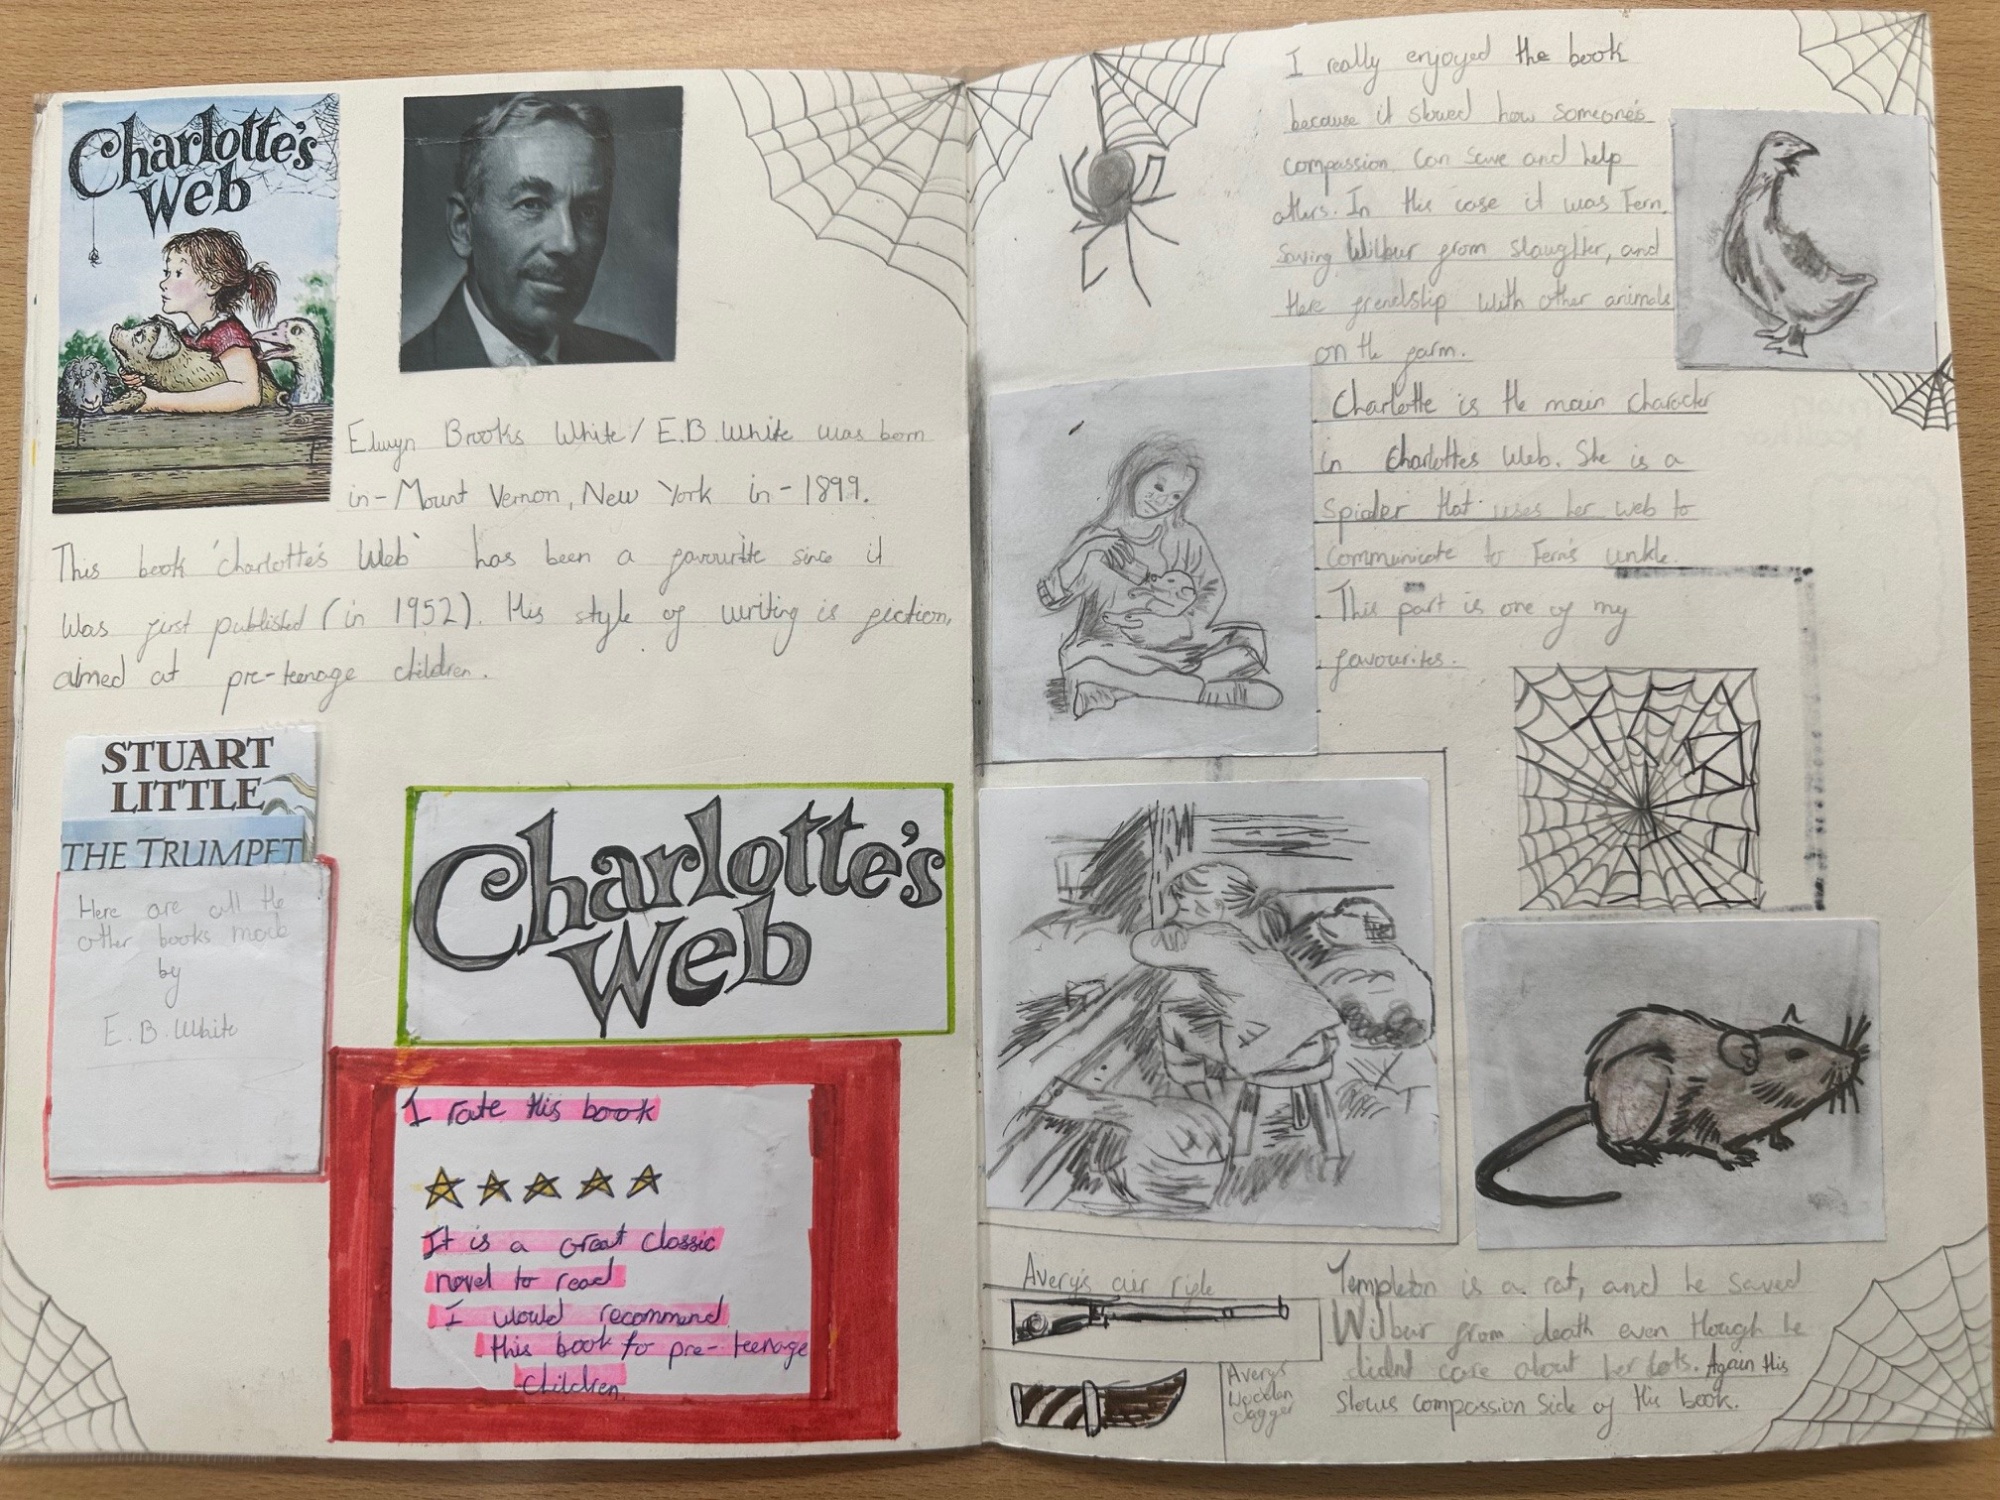 Charlotte's
Web
Elwyn Brooks White / E.B. White was born
in-Mount Vernon, New York in-1899.
This book 'Charlotte's Web' has been a favourite since it
was first published (in 1952). His style of writing is fiction,
aimed at pre-teenage children.
STUART
LITTLE
THE TRUMPET
Here are all the
other books made
by
E.B. White
Charlotte's
Web
I rate this book
It is a great classic
novel to read
I would recommend
this book to pre-teenage
children.
I really enjoyed the book
because it showed how someone's
compassion can save and help
others. In this case it was Fern
saving Wilbur from slaughter, and
there friendship with other animals
on the farm.
Charlotte is the main character
in Charlotte's Web. She is a
spider that uses her web to
communicate to Fern's unkle.
This part is one of my
favourites.
Avery's air rifle
Avery's
Wooden
Dagger
Templeton is a rat, and he saved
Wilbur from death even though he
didnt care about her lots. Again this
shows compassion side of this book.